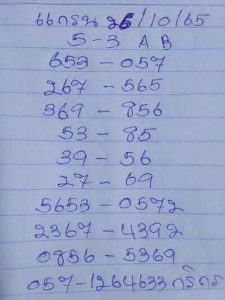 66กรน 26/10/65
5-3 A B
653-057
267-565
369-856
53-85
39-56
27-69
5653-0572
2367-4392
0856-5369
057-1264633